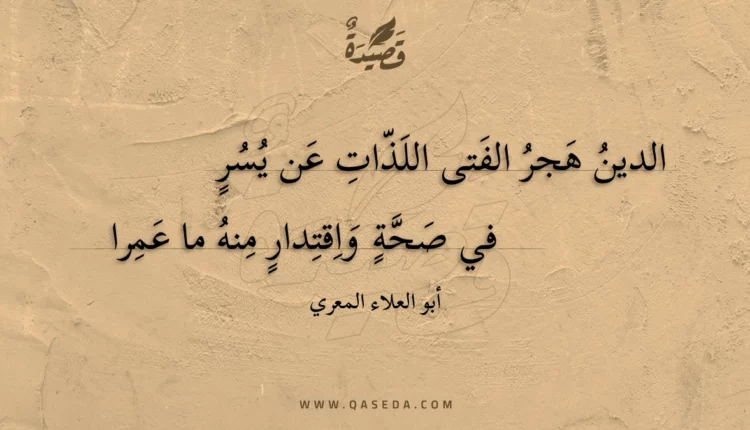 قَصِيْدَةٌ
الدينُ هَجرُ الفَتى اللَذّاتِ عَن يُسُرٍ
في صَحَّةٍ وَاِقتِدارٍ مِنهُ ما عَمِرا
أبو العلاء المعري
WWW.QASEDA.COM